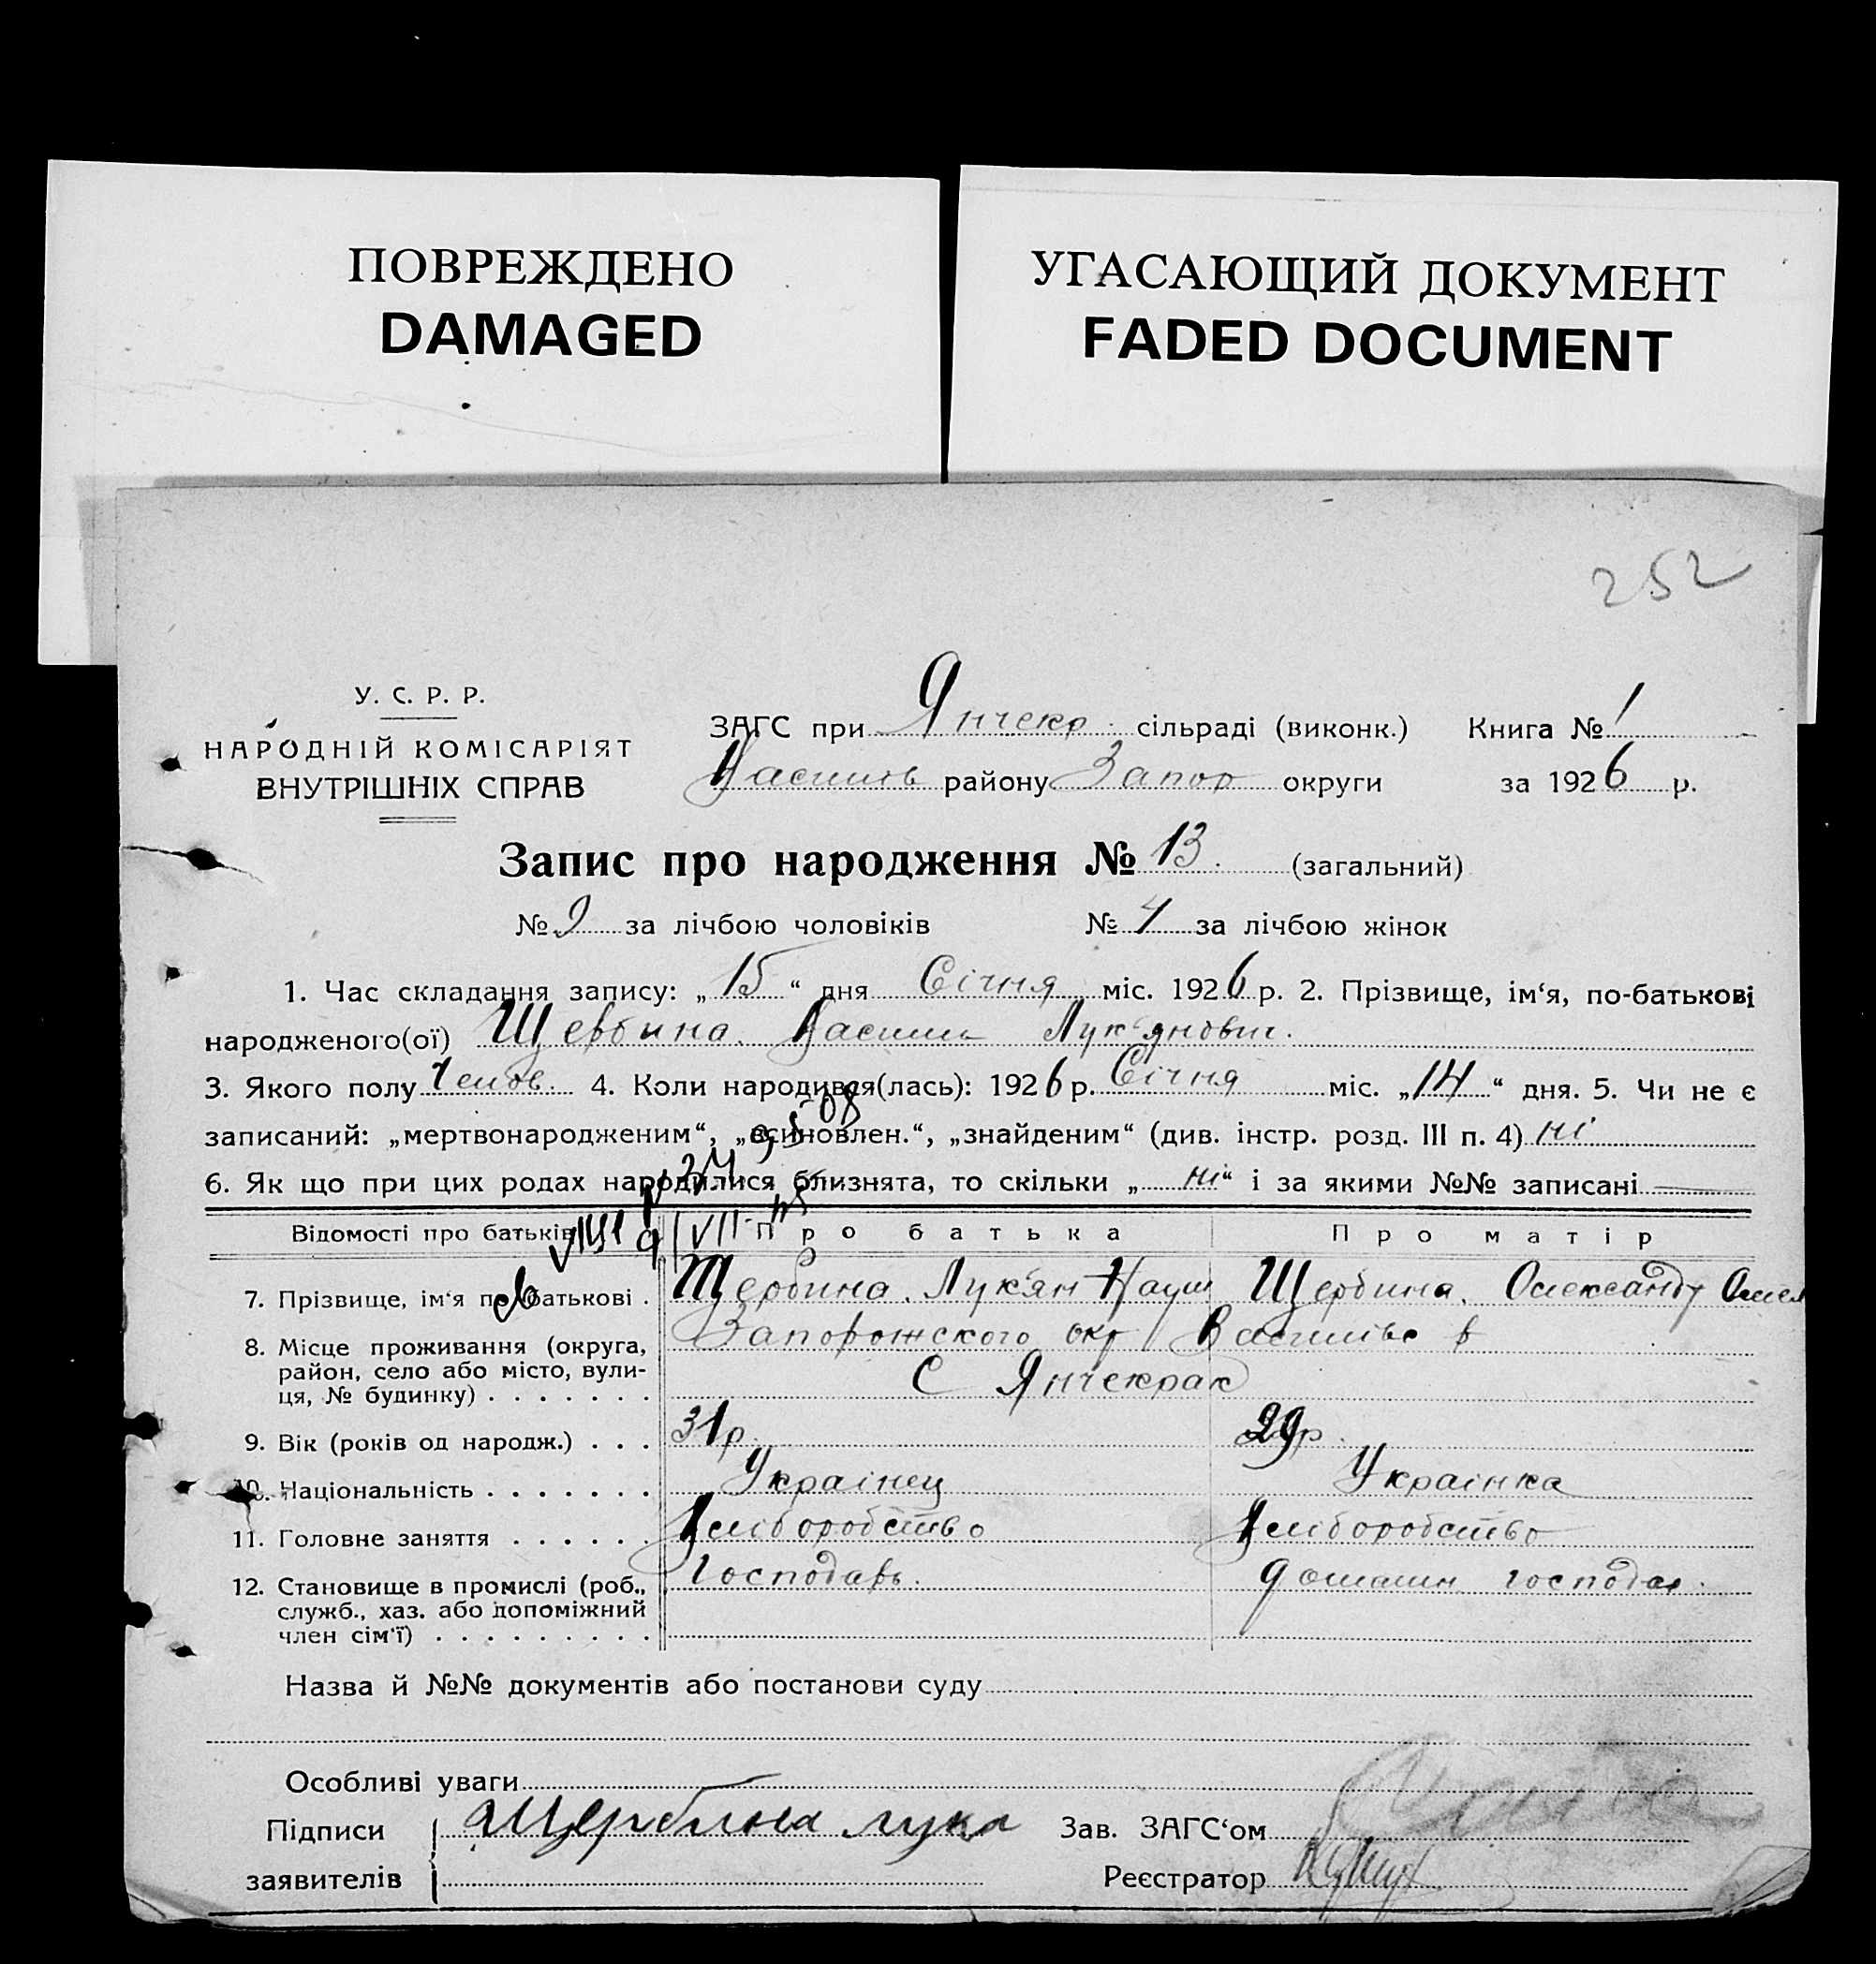 ПОВРЕЖДЕНО
DAMAGED
УГАСАЮЩИЙ ДОКУМЕНТ
FADED DOCUMENT
252
У. С. Р. Р.
НАРОДНІЙ КОМІСАРІЯТ
ВНУТРІШНІХ СПРАВ
ЗАГС при Янчекр. сільраді (виконк.) Книга № 1
Василів району Запор округи за 1926 р.
Запис про народження № 13. (загальний)
№ 9 за лічбою чоловіків № 4 за лічбою жінок
1. Час складання запису: „15“ дня Січня міс. 1926 р. 2. Прізвище, ім‘я, по-батькові
народженого(ої) Щербина. Василь Лук‘янович.
3. Якого полу Челов. 4. Коли народився(лась): 1926 р. Січня міс. „14“ дня. 5. Чи не є
записаний: „мертвонародженим“, „всиновлен.“, „знайденим“ (див. інстр. розд. III п. 4) ні
6. Як що при цих родах народилися близнята, то скільки „ні“ і за якими №№ записані
Відомості про батьків Про батька Про матір
7. Прізвище, ім‘я по-батькові . Щербина. Лук‘ян Наум Щербина. Олександр Омел
8. Місце проживання (округа, Запорожского окр Василівс р
район, село або місто, вули- С Янчекрак
ця, № будинку) . . . . . . .
9. Вік (років од народж.) . . . 31 р. 29 р.
10. Національність . . . . . . . Українец Українка
11. Головне заняття . . . . . . Хліборобство Хліборобство
12. Становище в промислі (роб., Господарь. домашн господар.
служб., хаз. або допоміжний
член сім‘ї) . . . . . . . . .
Назва й №№ документів або постанови суду
Особливі уваги
Підписи Щербина лука Зав. ЗАГС‘ом
заявителів Реєстратор